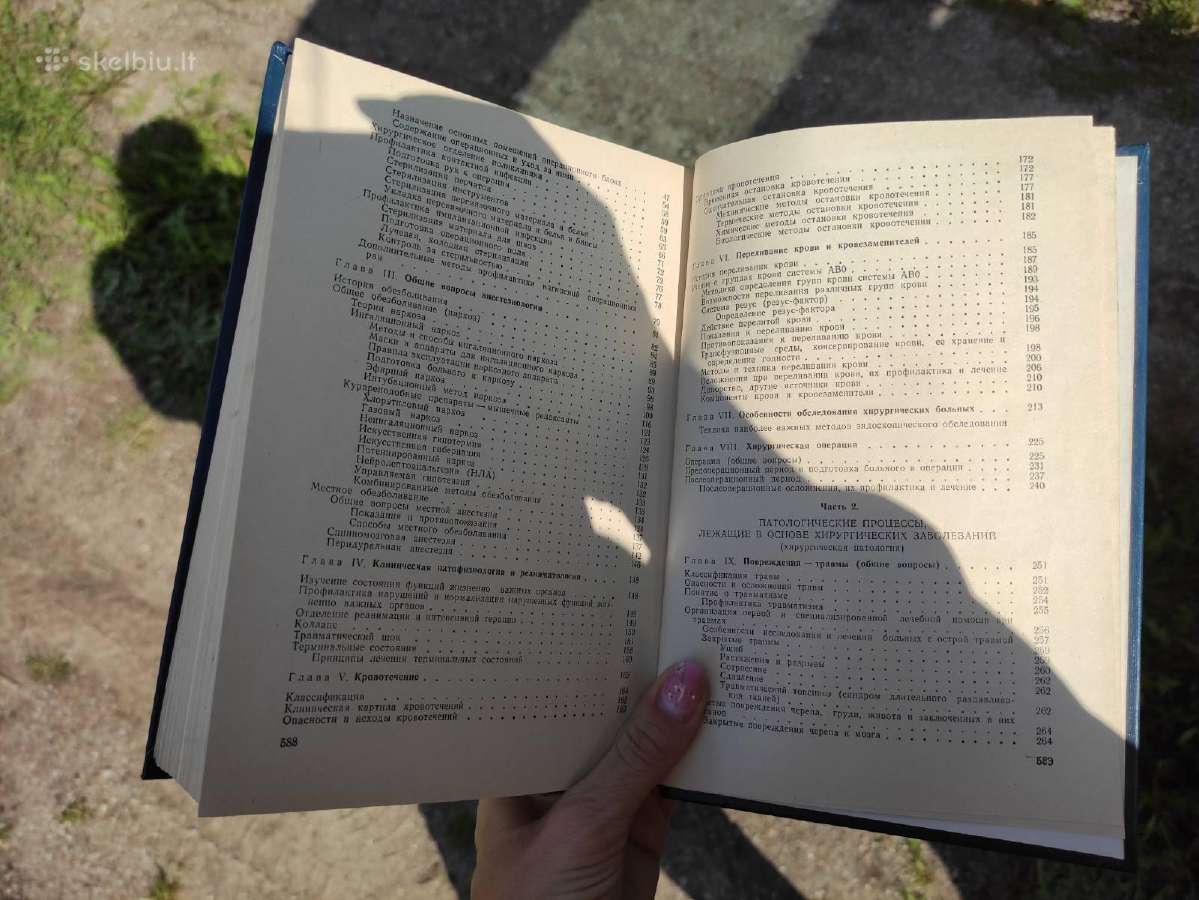 skelbiu.lt
Назначение основных помещений операционного блока
Содержание операционных и уход за ними
Хирургическое отделение поликлиники
Профилактика контактной инфекции
Подготовка рук к операции
Стерилизация перчаток
Стерилизация инструментов
Стерилизация перевязочного материала и белья
Укладка перевязочного материала и белья в биксы
Профилактика имплантационной инфекции
Стерилизация материала для швов
Подготовка операционного поля
Лучевая, холодная стерилизация
Контроль за стерильностью
Дополнительные методы профилактики нагноений операционных
ран
Глава III. Общие вопросы анестезиологии
История обезболивания
Общее обезболивание (наркоз)
Теории наркоза
Ингаляционный наркоз
Методы и способы ингаляционного наркоза
Маски и аппараты для ингаляционного наркоза
Правила эксплуатации наркозного аппарата
Подготовка больного к наркозу
Эфирный наркоз
Интубационный метод наркоза
Курареподобные препараты — мышечные релаксанты
Хлорэтиловый наркоз
Газовый наркоз
Неингаляционный наркоз
Искусственная гипотермия
Искусственная гибернация
Потенцированный наркоз
Нейролептоанальгезия (НЛА)
Управляемая гипотензия
Комбинированные методы обезболивания
Местное обезболивание
Общие вопросы местной анестезии
Показания и противопоказания
Способы местного обезболивания
Спинномозговая анестезия
Перидуральная анестезия
Глава IV. Клиническая патофизиология и реаниматология
Изучение состояния функций жизненно важных органов
Профилактика нарушений и нормализация нарушенных функций жиз-
ненно важных органов
Отделение реанимации и интенсивной терапии
Коллапс
Травматический шок
Терминальные состояния
Принципы лечения терминальных состояний
Глава V. Кровотечение
Классификация
Клиническая картина кровотечений
Опасности и исходы кровотечений
588
кровотечения 172
Временная остановка кровотечения 172
Окончательная остановка кровотечения 177
Механические методы остановки кровотечения 177
Термические методы остановки кровотечения 181
Химические методы остановки кровотечения 181
Биологические методы остановки кровотечения 182
Глава VI. Переливание крови и кровезаменителей 185
История переливания крови 185
о группах крови системы АВ0 187
Методика определения групп крови системы АВ0 189
Возможности переливания различных групп крови 193
Система резус (резус-фактор) 194
Определение резус-фактора 194
Действие перелитой крови 195
Показания к переливанию крови 196
Противопоказания к переливанию крови 198
Трансфузионные среды, консервирование крови, ее хранение и
определение годности 198
Методы и техника переливания крови 200
Осложнения при переливании крови, их профилактика и лечение 206
Донорство, другие источники крови 210
Компоненты крови и кровезаменители 210
Глава VII. Особенности обследования хирургических больных 213
Техника наиболее важных методов эндоскопического обследования
Глава VIII. Хирургическая операция 225
Операция (общие вопросы) 225
Предоперационный период и подготовка больного к операции 231
Послеоперационный период 237
Послеоперационные осложнения, их профилактика и лечение 240
Часть 2.
ПАТОЛОГИЧЕСКИЕ ПРОЦЕССЫ,
ЛЕЖАЩИЕ В ОСНОВЕ ХИРУРГИЧЕСКИХ ЗАБОЛЕВАНИЙ
(хирургическая патология)
Глава IX. Повреждения — травмы (общие вопросы) 251
Классификация травм 251
Опасности и осложнения травмы 252
Понятие о травматизме 254
Профилактика травматизма 255
Организация первой и специализированной лечебной помощи при
травмах 256
Особенности исследования и лечения больных с острой травмой 257
Закрытые травмы 259
Ушиб 259
Растяжения и разрывы 260
Сотрясение 262
Сдавление 262
Травматический токсикоз (синдром длительного раздавлива-
ния тканей) 262
повреждения черепа, груди, живота и заключенных в них
264
Закрытые повреждения черепа и мозга 264
589